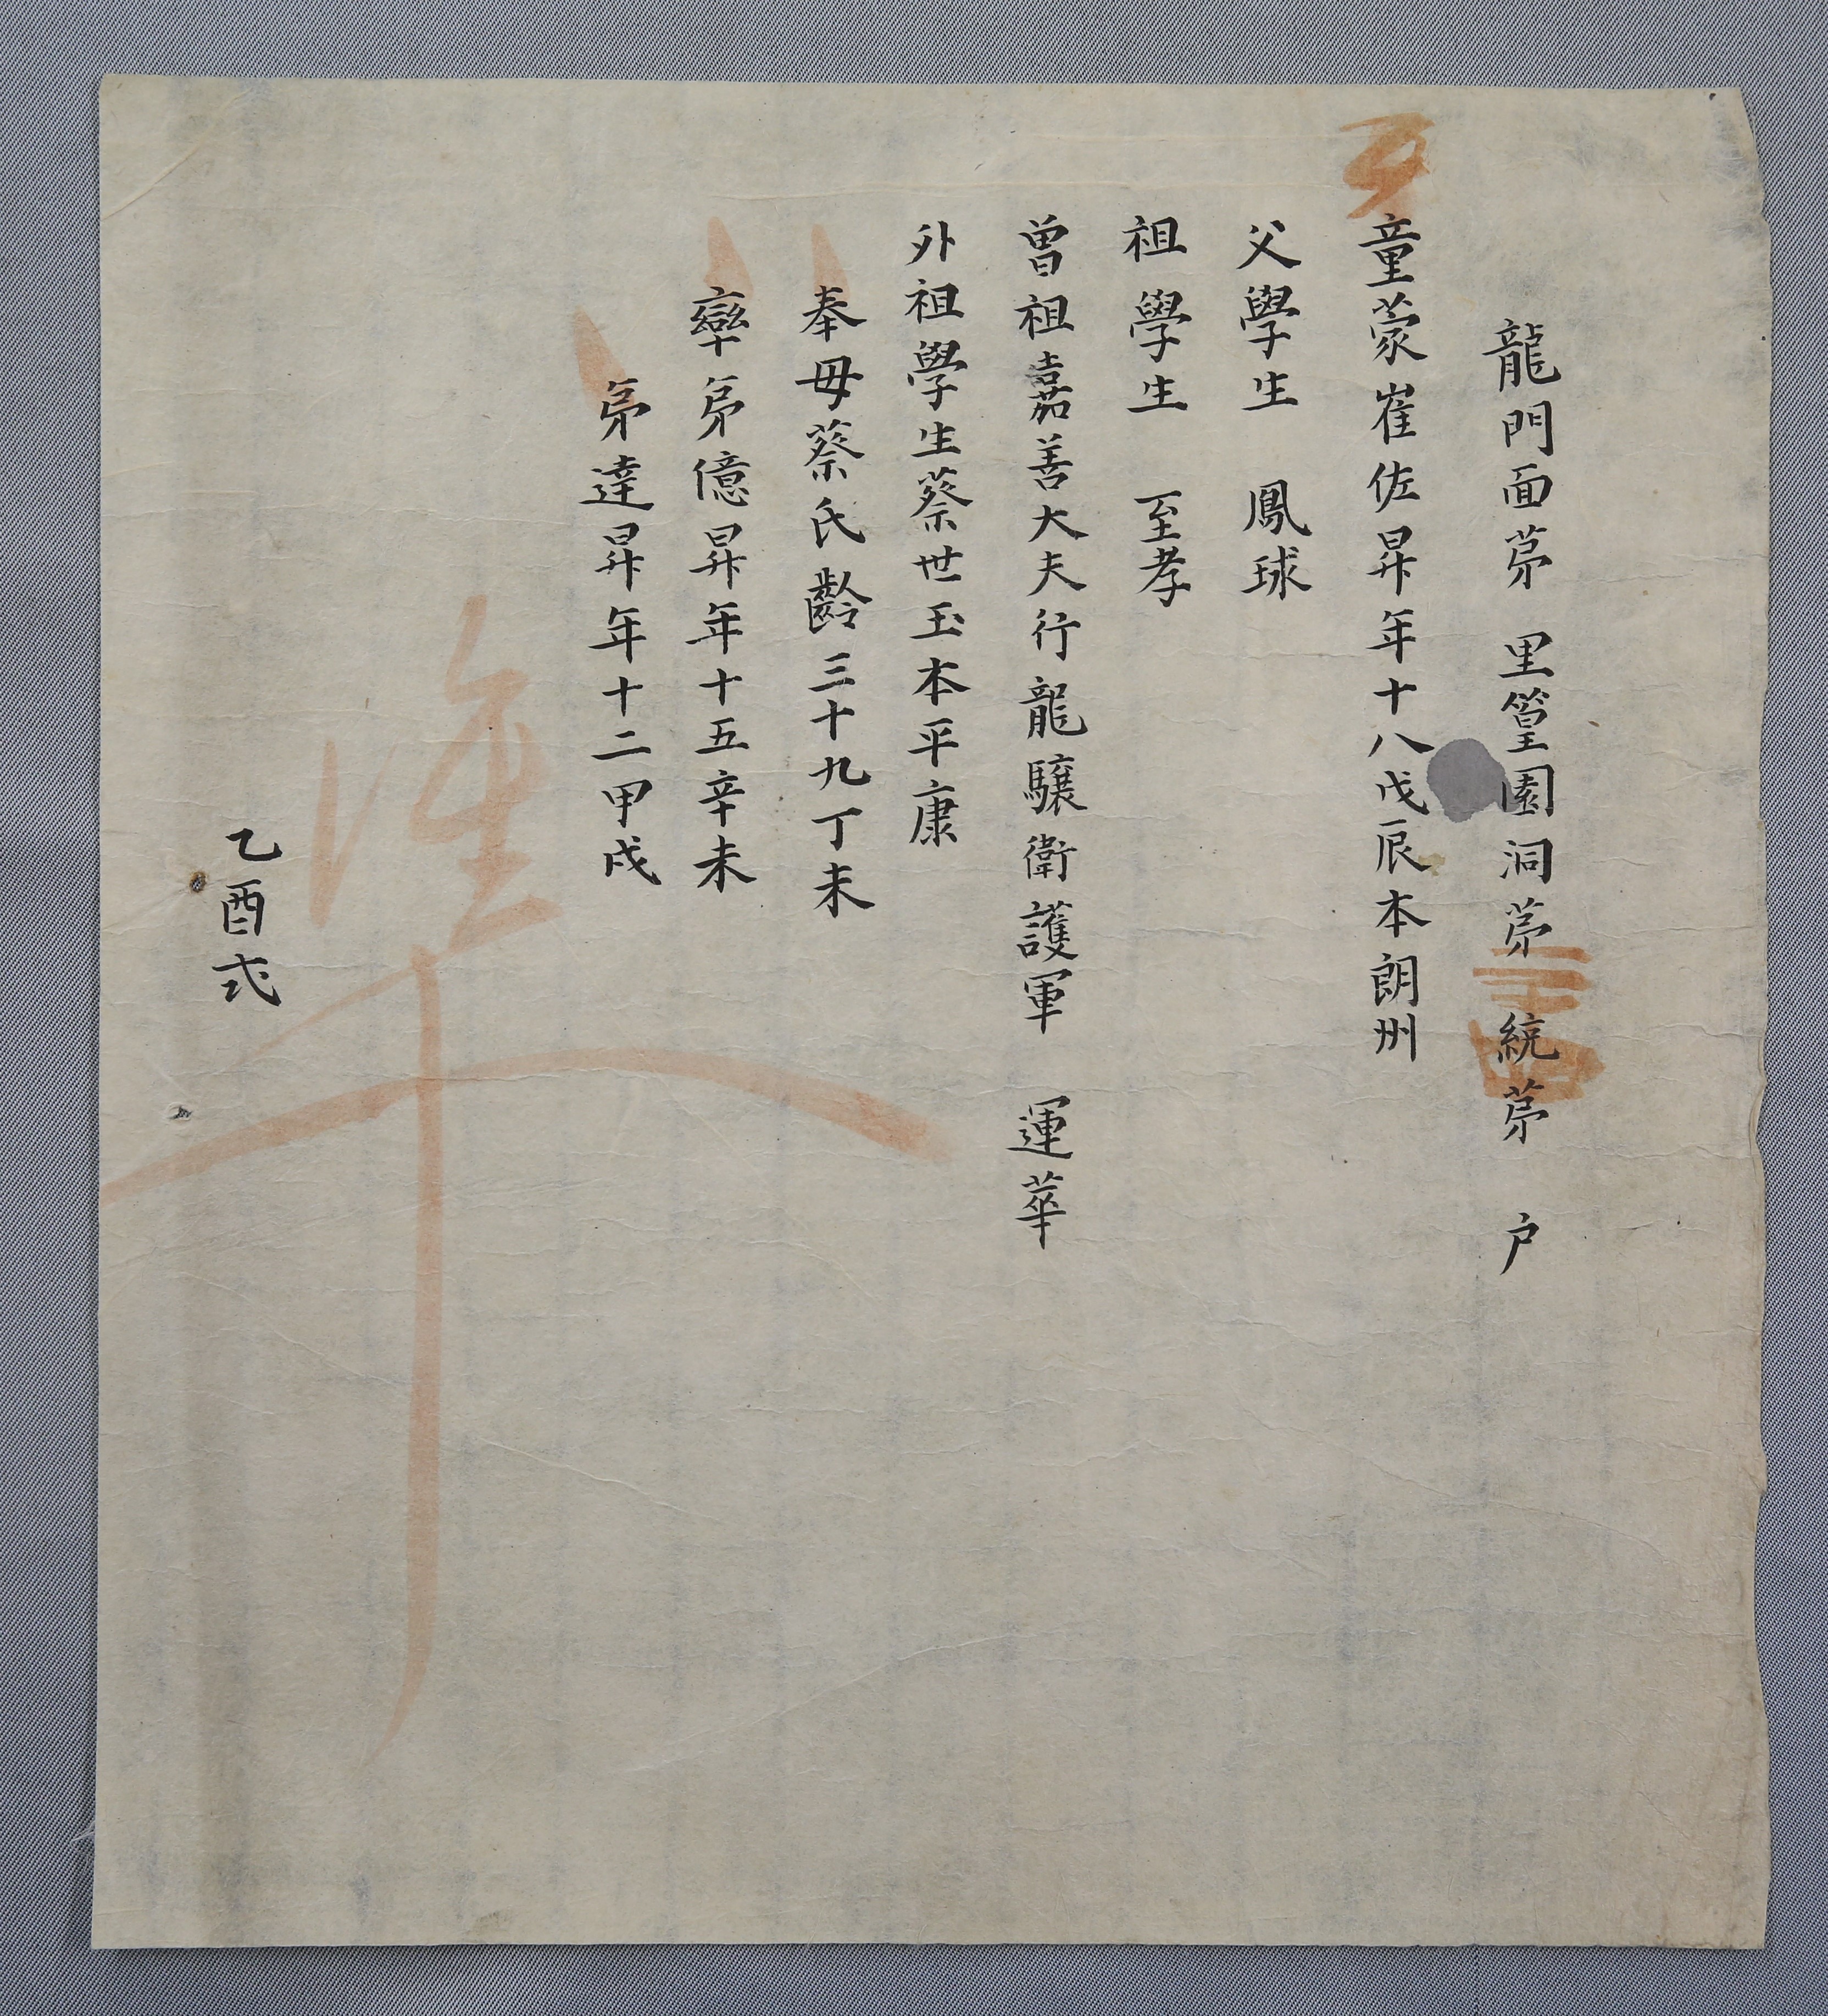 龍門面苐 里篁園洞苐 統苐 户
童蒙崔佐昇年十八戊辰本朗州
父學生 鳳球
祖學生 至孝
曾祖嘉善大夫行龍驤衛護軍 運華
外祖學生蔡世玉本平康
奉母蔡氏齡三十九丁未
率弟億昇年十五辛未
弟達昇年十二甲戌
準
乙酉式